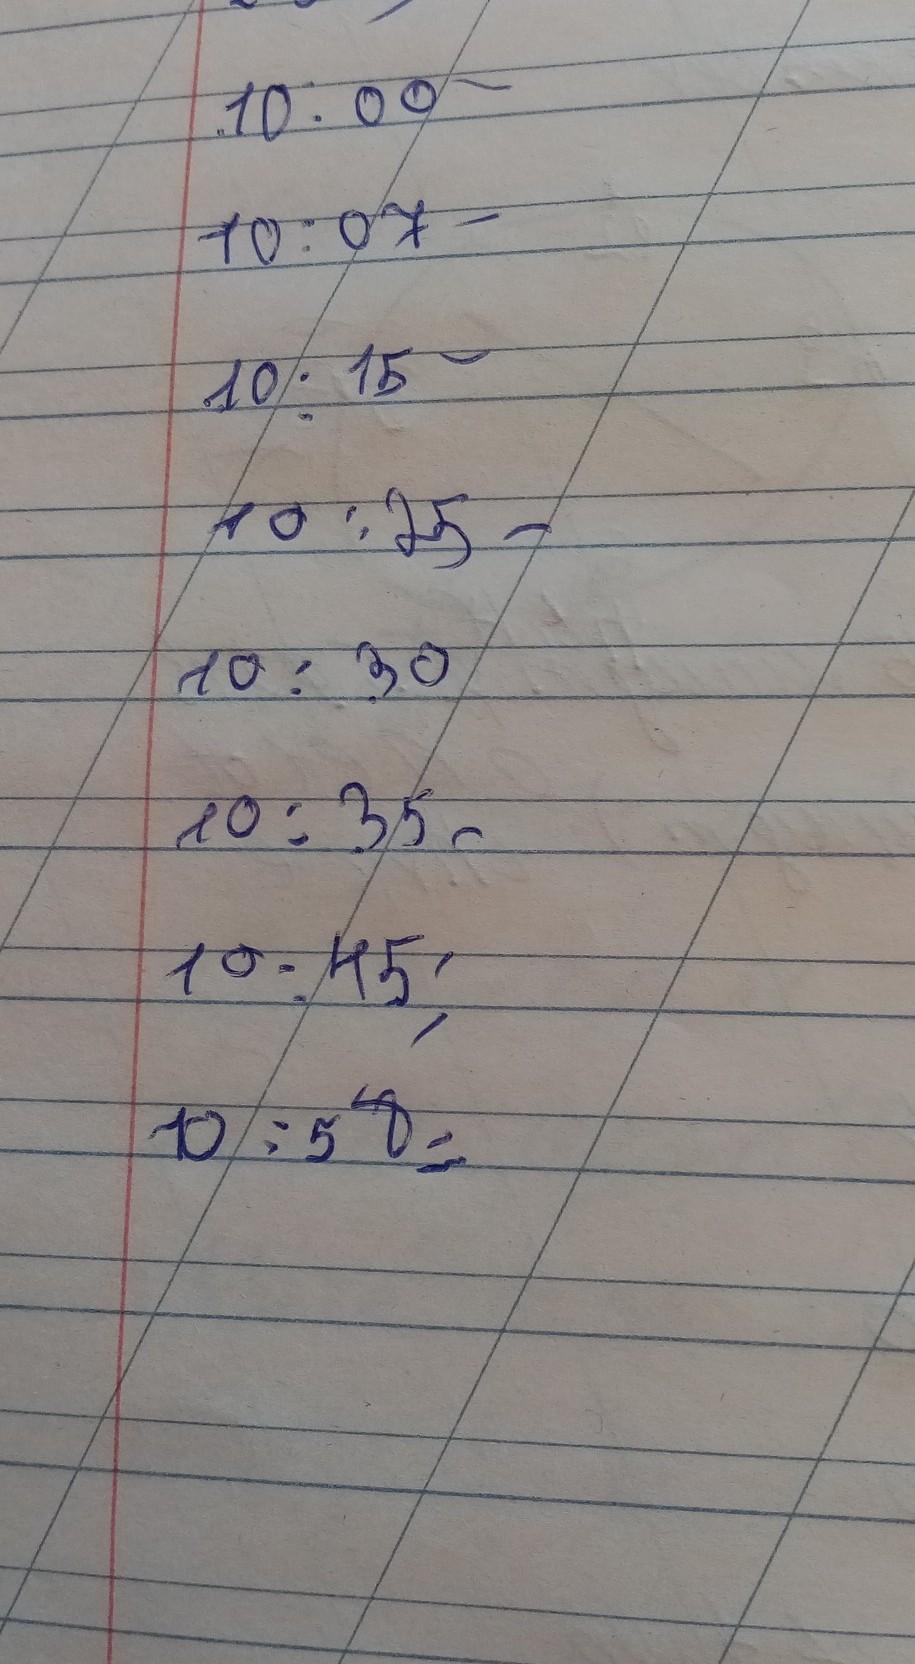 10:00-
10:07-
10:15-
10:25-
10:30
10:35-
10:45;
10:58-